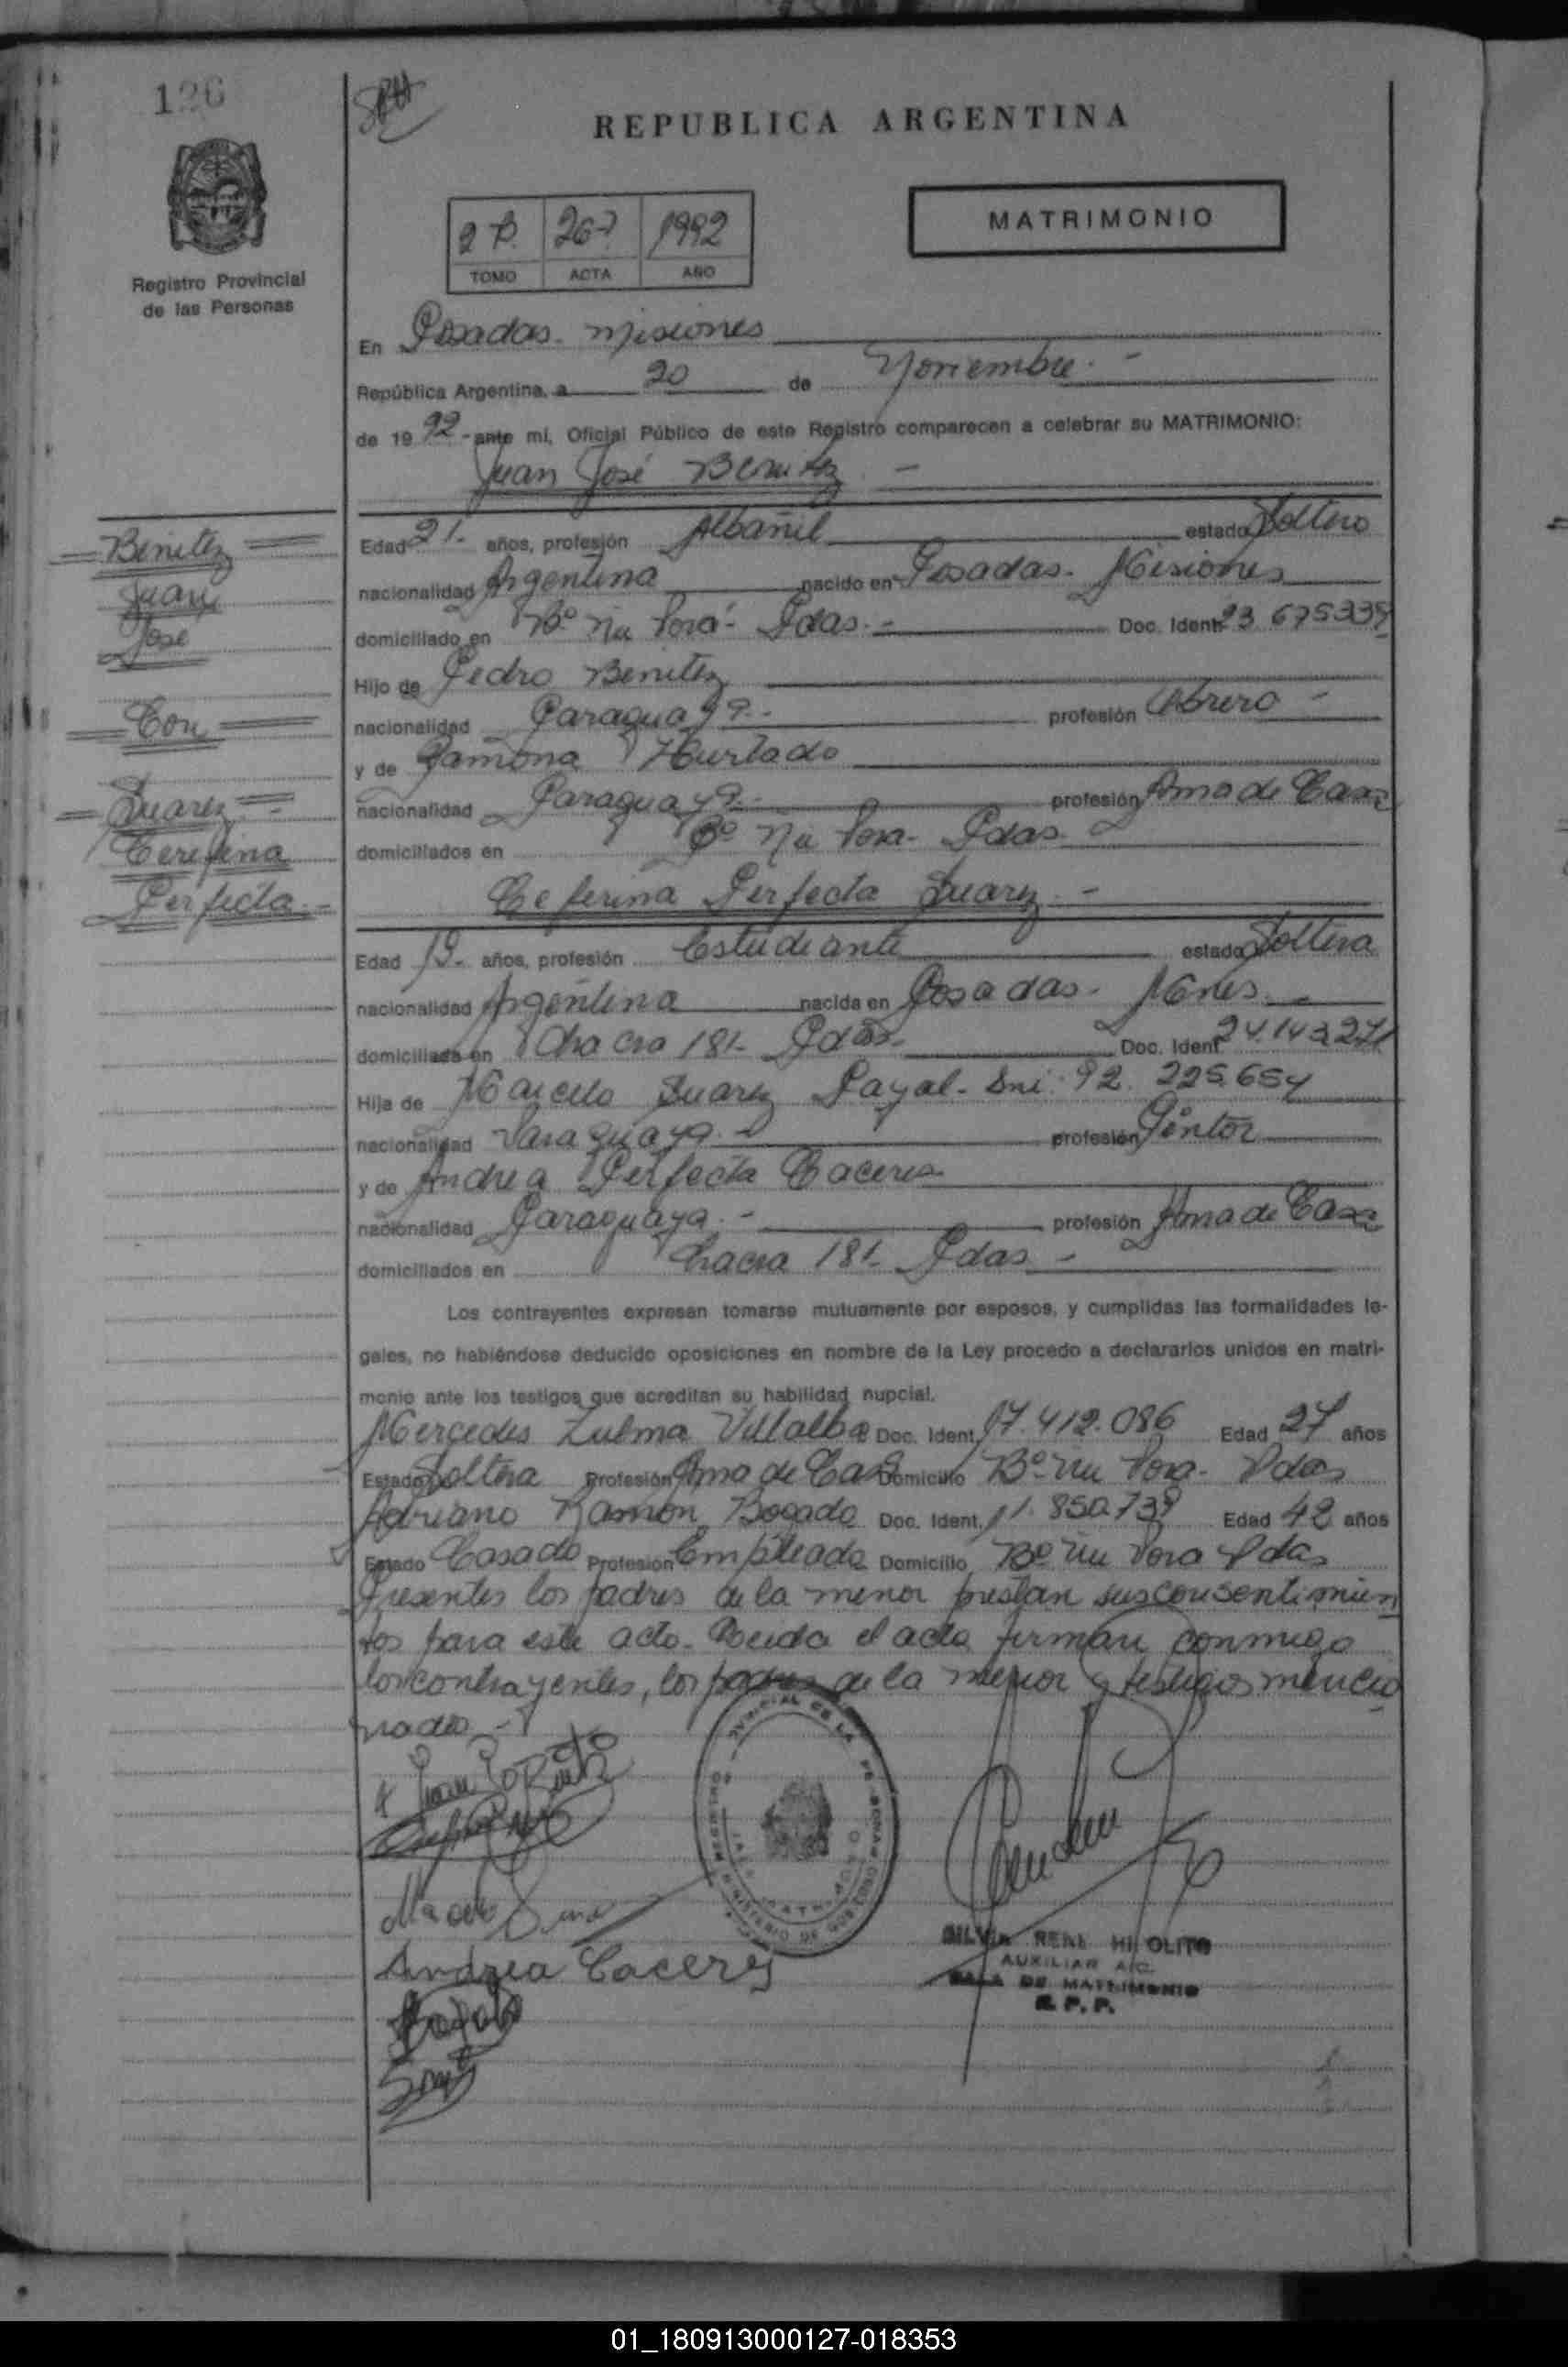 126
REPUBLICA ARGENTINA
2 267 1992
TOMO ACTA AÑO
MATRIMONIO
Registro Provincial
de las Personas
En Posadas. Misiones
República Argentina, a 20 de Noviembre. -
de 1992 - ante mí, Oficial Público de este Registro comparecen a celebrar su MATRIMONIO:
Juan José Benitez -
Benitez
Juan
José
Con
Suarez
Ceferina
Perfecta
Edad 21. años, profesión Albañil estado Soltero
nacionalidad Argentina nacido en Posadas. Misiones
domiciliado en Bº Ñu Porá - Pdas. - Doc. Ident. 23.675.339
Hijo de Pedro Benitez
nacionalidad Paraguaya. - profesión Obrero -
y de Ramona Hurtado
nacionalidad Paraguaya. - profesión Ama de Casa
domiciliados en Bº Ñu Pora - Pdas. -
Ceferina Perfecta Suarez. -
Edad 19. años, profesión Estudiante estado Soltera
nacionalidad Argentina nacida en Posadas. Mnes. -
domiciliada en Chacra 181 - Pdas. Doc. Ident. 24.143.271
Hija de Marcelo Suarez Payal - Dni. 92.225.654
nacionalidad Paraguaya. - profesión Pintor
y de Andrea Perfecta Caceres
nacionalidad Paraguaya. - profesión Ama de Casa
domiciliados en Chacra 181 - Pdas -
Los contrayentes expresan tomarse mutuamente por esposos, y cumplidas las formalidades le-
gales, no habiéndose deducido oposiciones en nombre de la Ley procedo a declararlos unidos en matri-
monio ante los testigos que acreditan su habilidad nupcial.
Mercedes Zulma Villalba Doc. Ident. 17.412.086 Edad 27 años
Estado Soltera Profesión Ama de Casa Domicilio Bº Ñu Pora - Pdas
Adriano Ramon Bogado Doc. Ident. 11.850.739 Edad 42 años
Estado Casado Profesión Empleado Domicilio Bº Ñu Pora Pdas
Presentes los padres de la menor prestan sus consentimien
tos para este acto. Leida el acta firman conmigo
los contrayentes, los padres de la menor y testigos mencio
nados. -
Andrea Caceres
SILVIA RENE HIPOLITO
AUXILIAR A/C.
SALA DE MATRIMONIO
R. P. P.
01_180913000127-018353